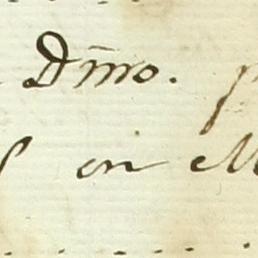 Dm̃o.
on M